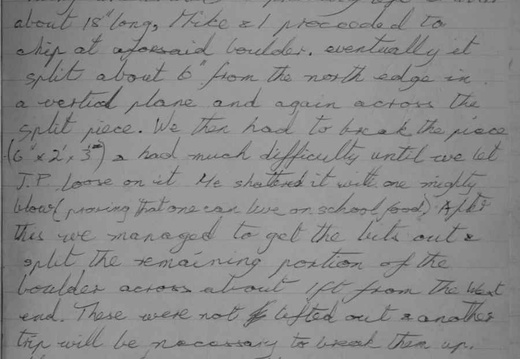 about 18" long, Mike & I proceeded to
chip at aforesaid boulder. eventually it
split about 6" from the north edge in
a vertical plane and again across the
split piece. We then had to break the piece
(6" x 2' x 3") & had much difficulty until we let
J.P. loose on it He shattered it with one mighty
blow (proving that one can live on school food) After
this we managed to get the bits out &
split the remaining portion of the
boulder across about 1ft from the West
end. These were not lifted out & another
trip will be necessary to break them up.